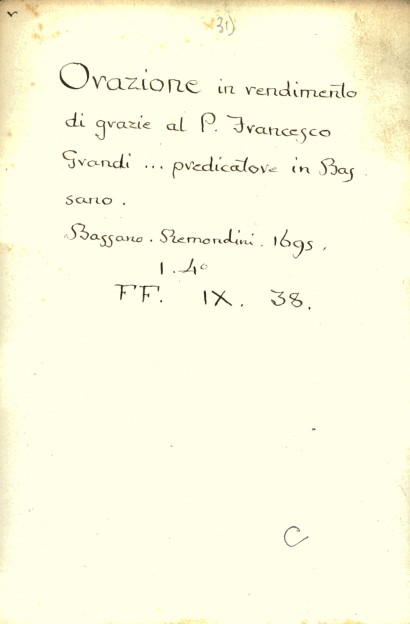 31)
Orazione in rendimento
di grazie al P. Francesco
Grandi ... predicatore in Bas
sano.
Bassano. Remondini. 1695.
1. 4º
FF. IX. 38.
C